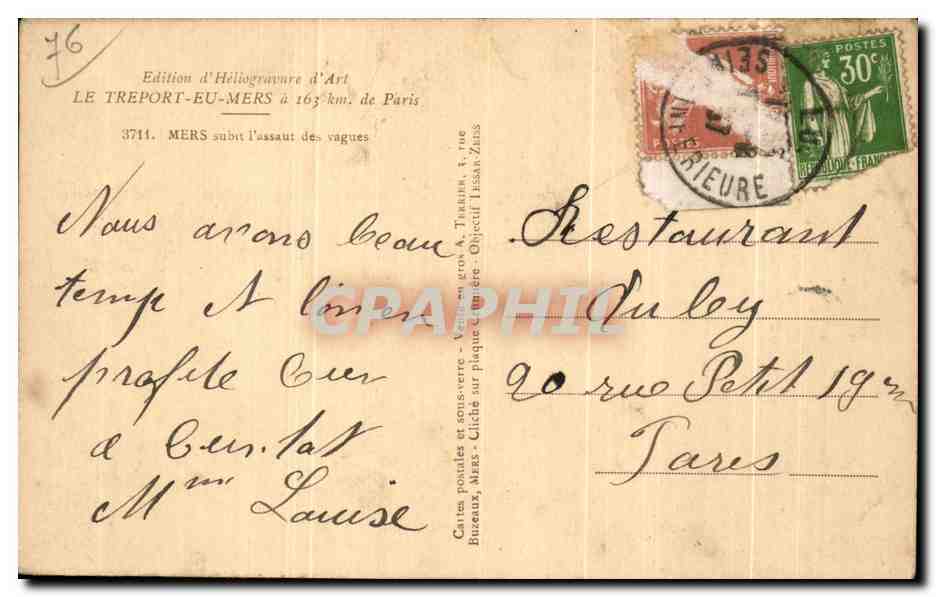 76
Edition d'Héliogravure d'Art
LE TREPORT-EU-MERS à 163 km. de Paris
3711. MERS subit l'assaut des vagues
Nous avons beau
temp et l'on en
profite bien
a
Mme Louise
Cartes postales et sous-verre - Vente en gros A. TERRIER, 3, rue
Buzeaux, MERS - Cliché sur plaque Lumière - Objectif TESSAR-ZEISS
CPAPHIL
POSTES
30c
REPUBLIQUE FRANÇ
INTERIEURE
SEIN
Restaurant
Duley
90 rue Petit 19
Pares